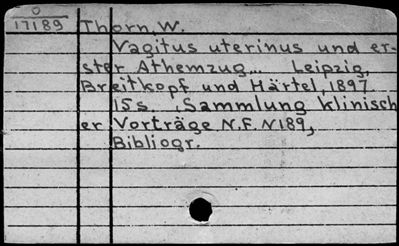 O
17189 Thorn, W.
Vagitus uterinus und er-
ster Athemzug... Leipzig,
Breitkopf und Härtel, 1897
15s. ,Sammlung klinisch
er Vorträge N.F. N189,
Bibliogr.